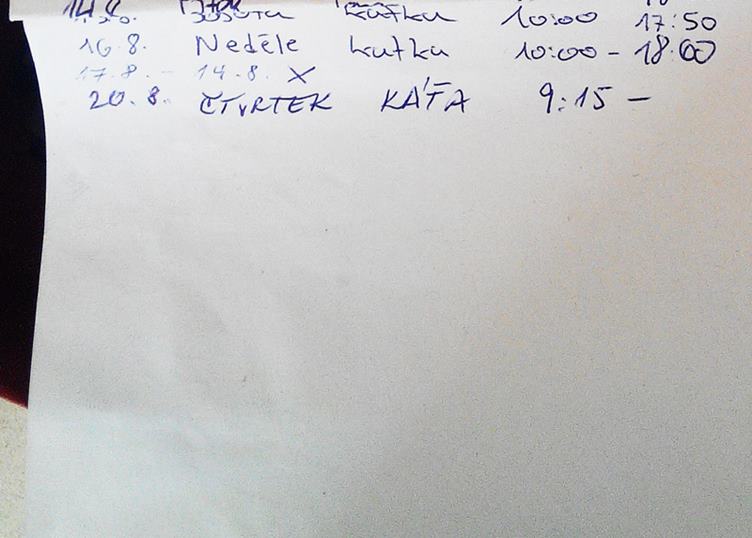 14.8.
Sobota Katka 10:00 17:50
16.8. Neděle Katka 10:00 - 18:00
17.8. - 14.8. X
20.8. ČTVRTEK KÁŤA 9:15 -